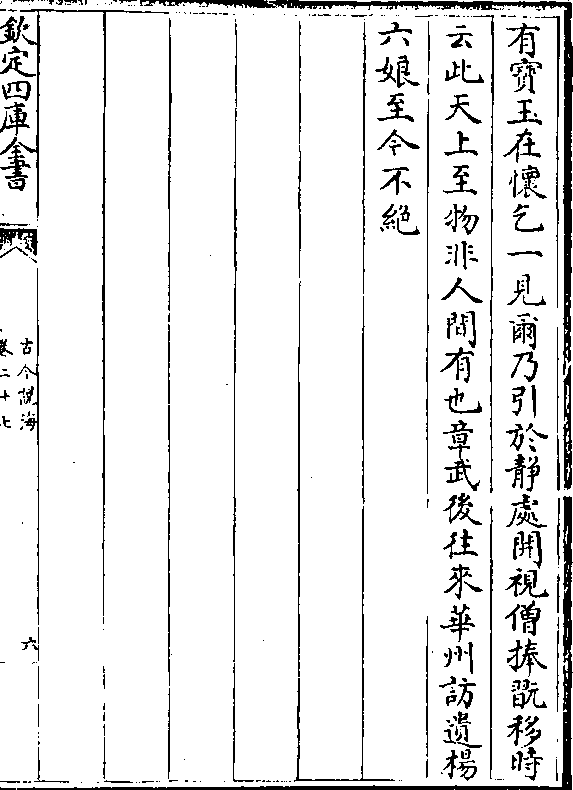 有寶玉在懷乞一見爾乃引於静處開視僧捧翫移時
云此天上至物非人間有也章武後往來華州訪遺楊
六娘至今不絶
欽定四庫全書
古今說海
卷二十七
六